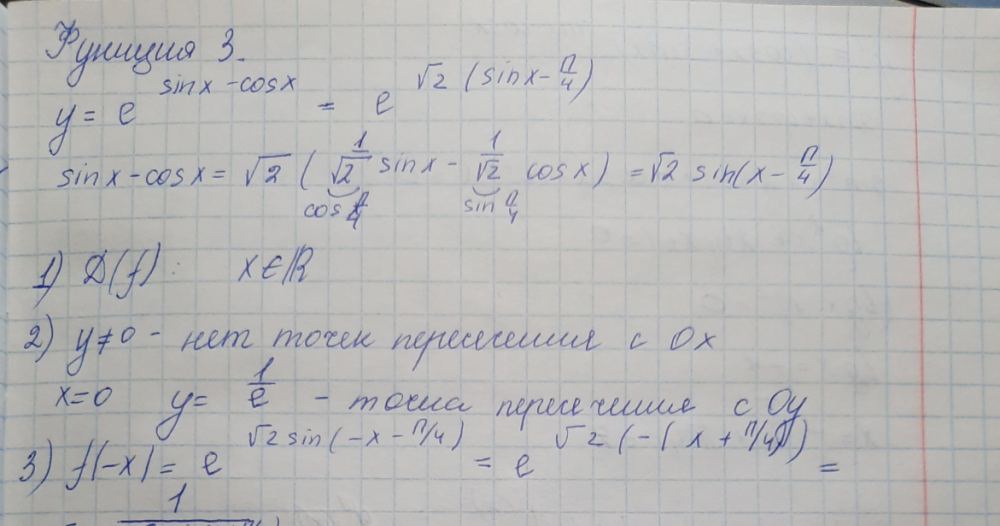 Функция 3.
y = e^(sinx - cosx) = e^(√2 (sinx - π/4))
sinx - cosx = √2 (1/√2 sinx - 1/√2 cosx) = √2 sin(x - π/4)
cos π/4 sin π/4
1) D(f): x∈ℝ
2) y≠0 - нет точек пересечения с Ox
x=0 y= 1/e - точка пересечения с Oy
3) f(-x) = e^(√2 sin(-x - π/4)) = e^(√2 (-(x + π/4))) =
1